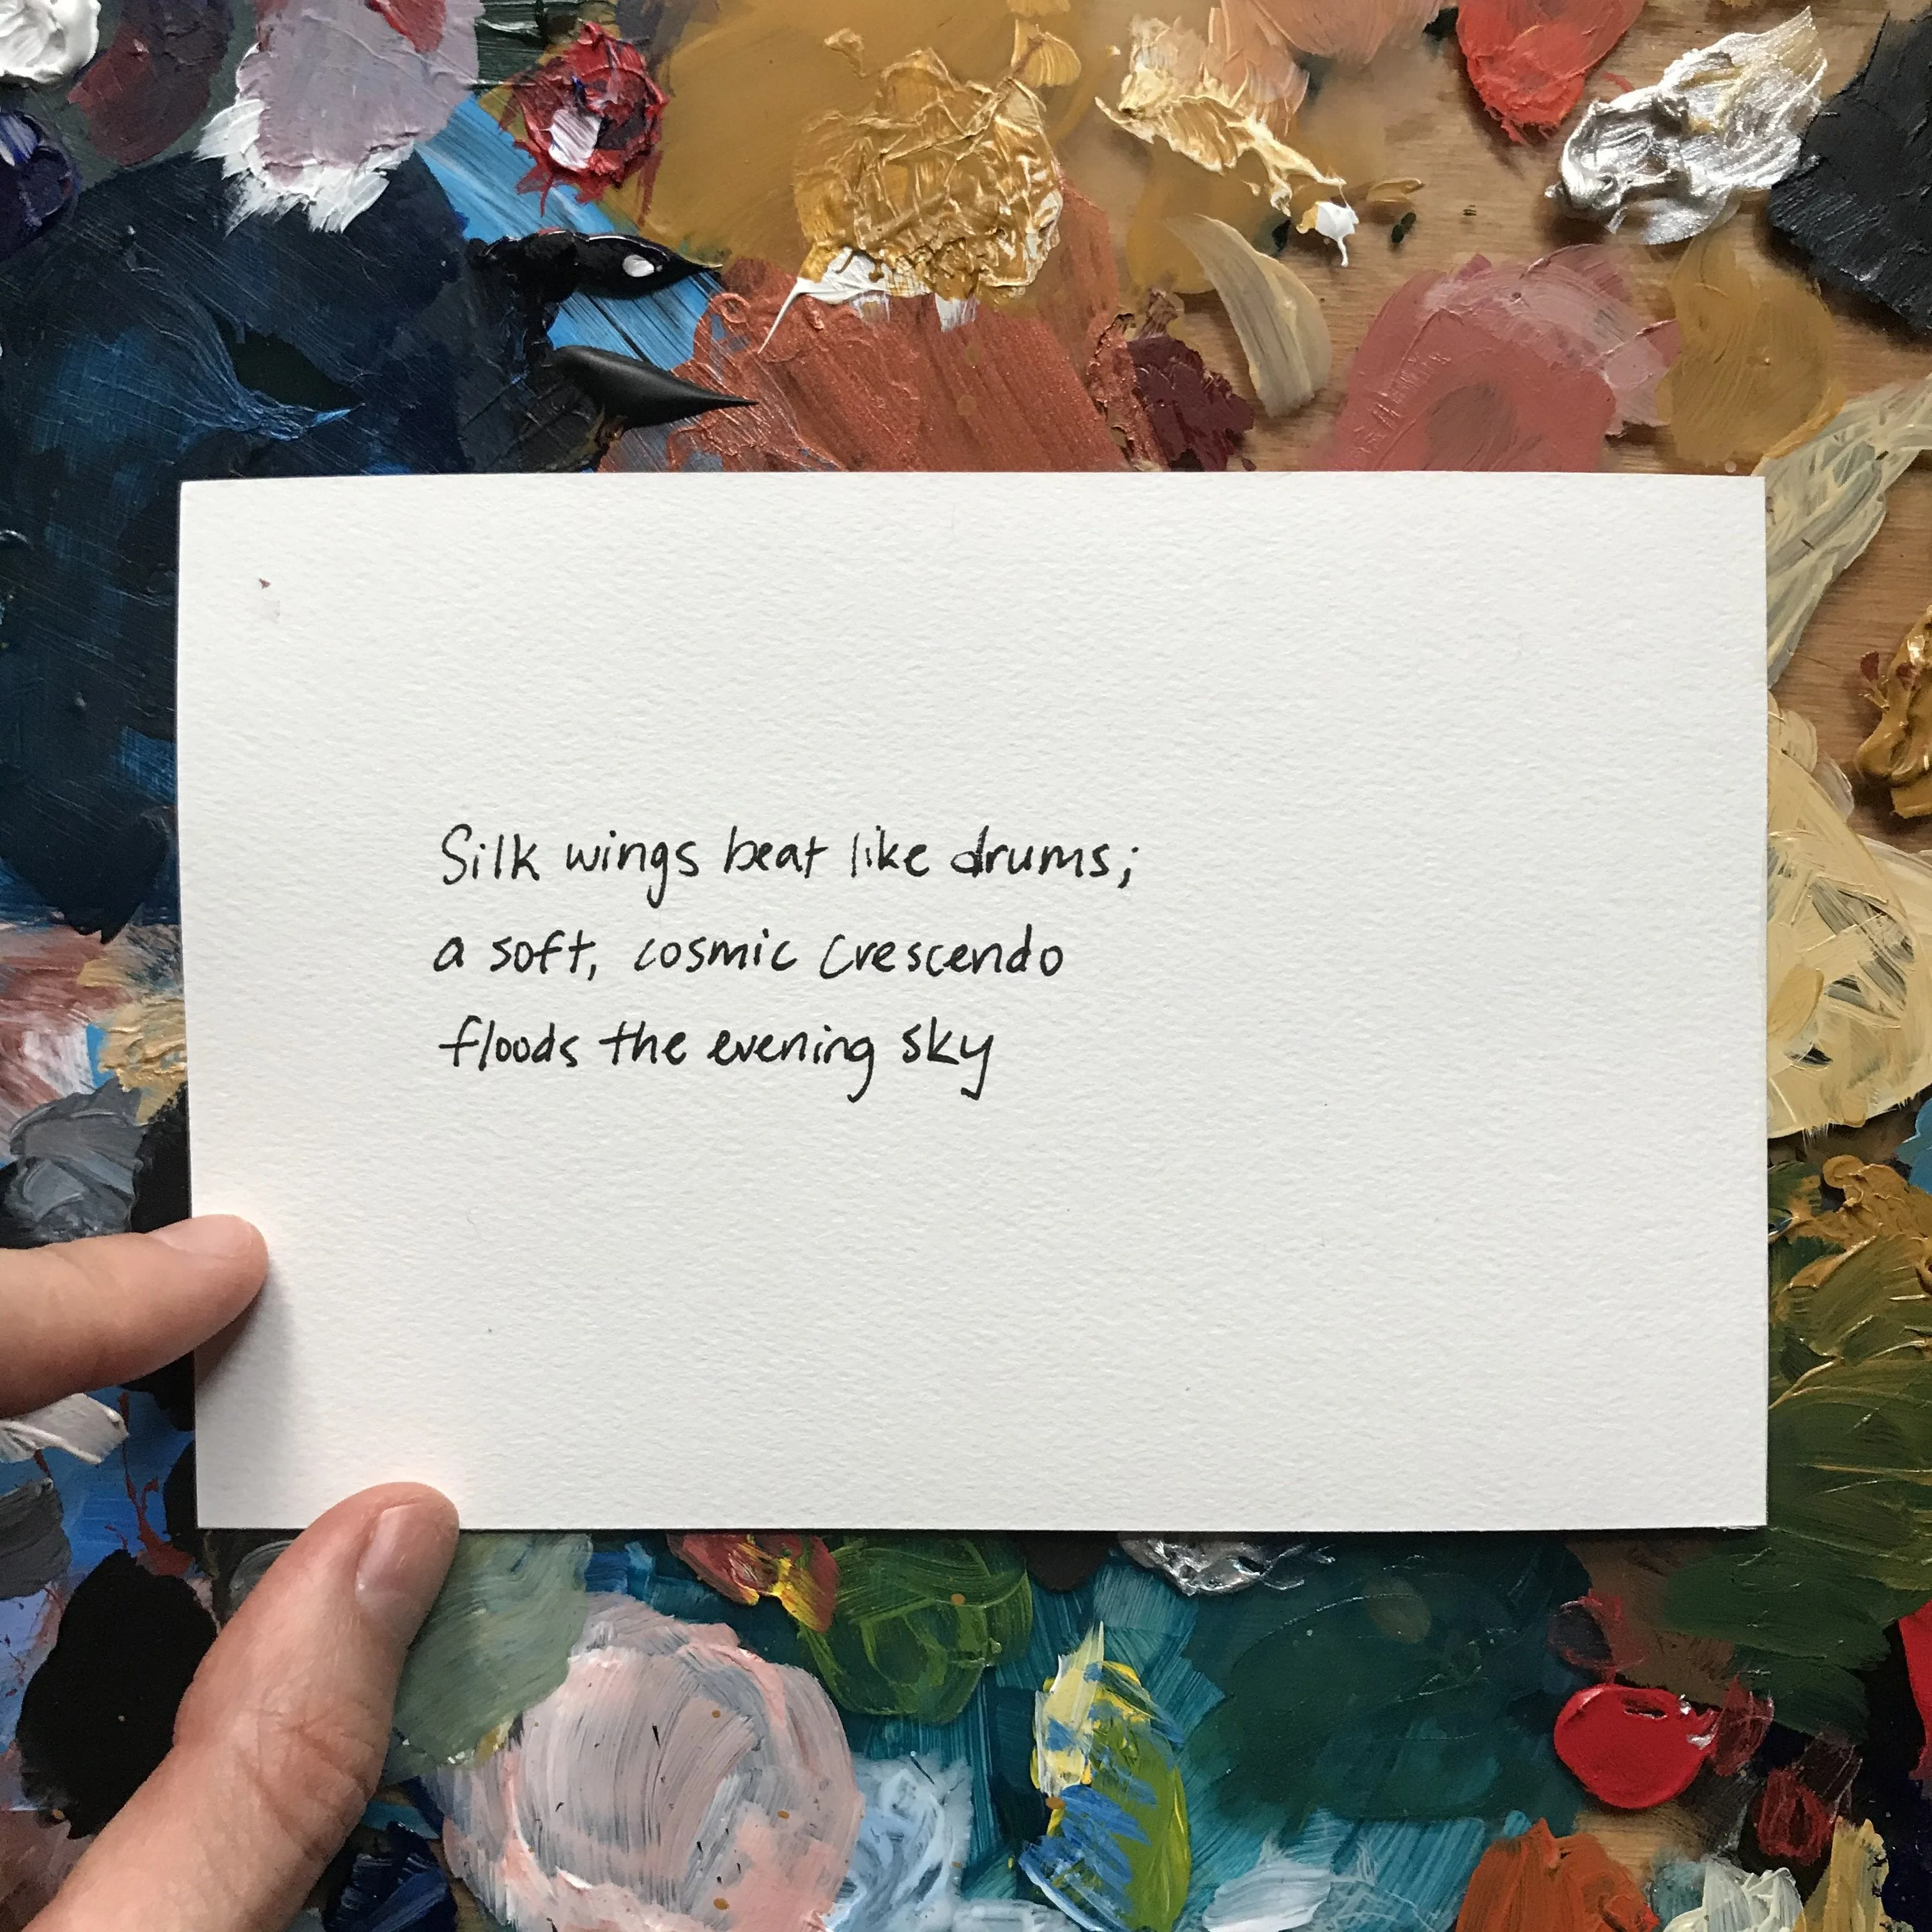 Silk wings beat like drums;
a soft, cosmic crescendo
floods the evening sky